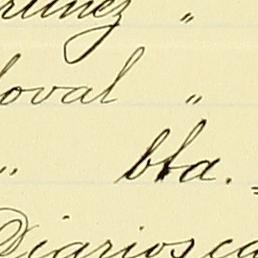 rtinez "
doval "
" bta.
Diarios ca